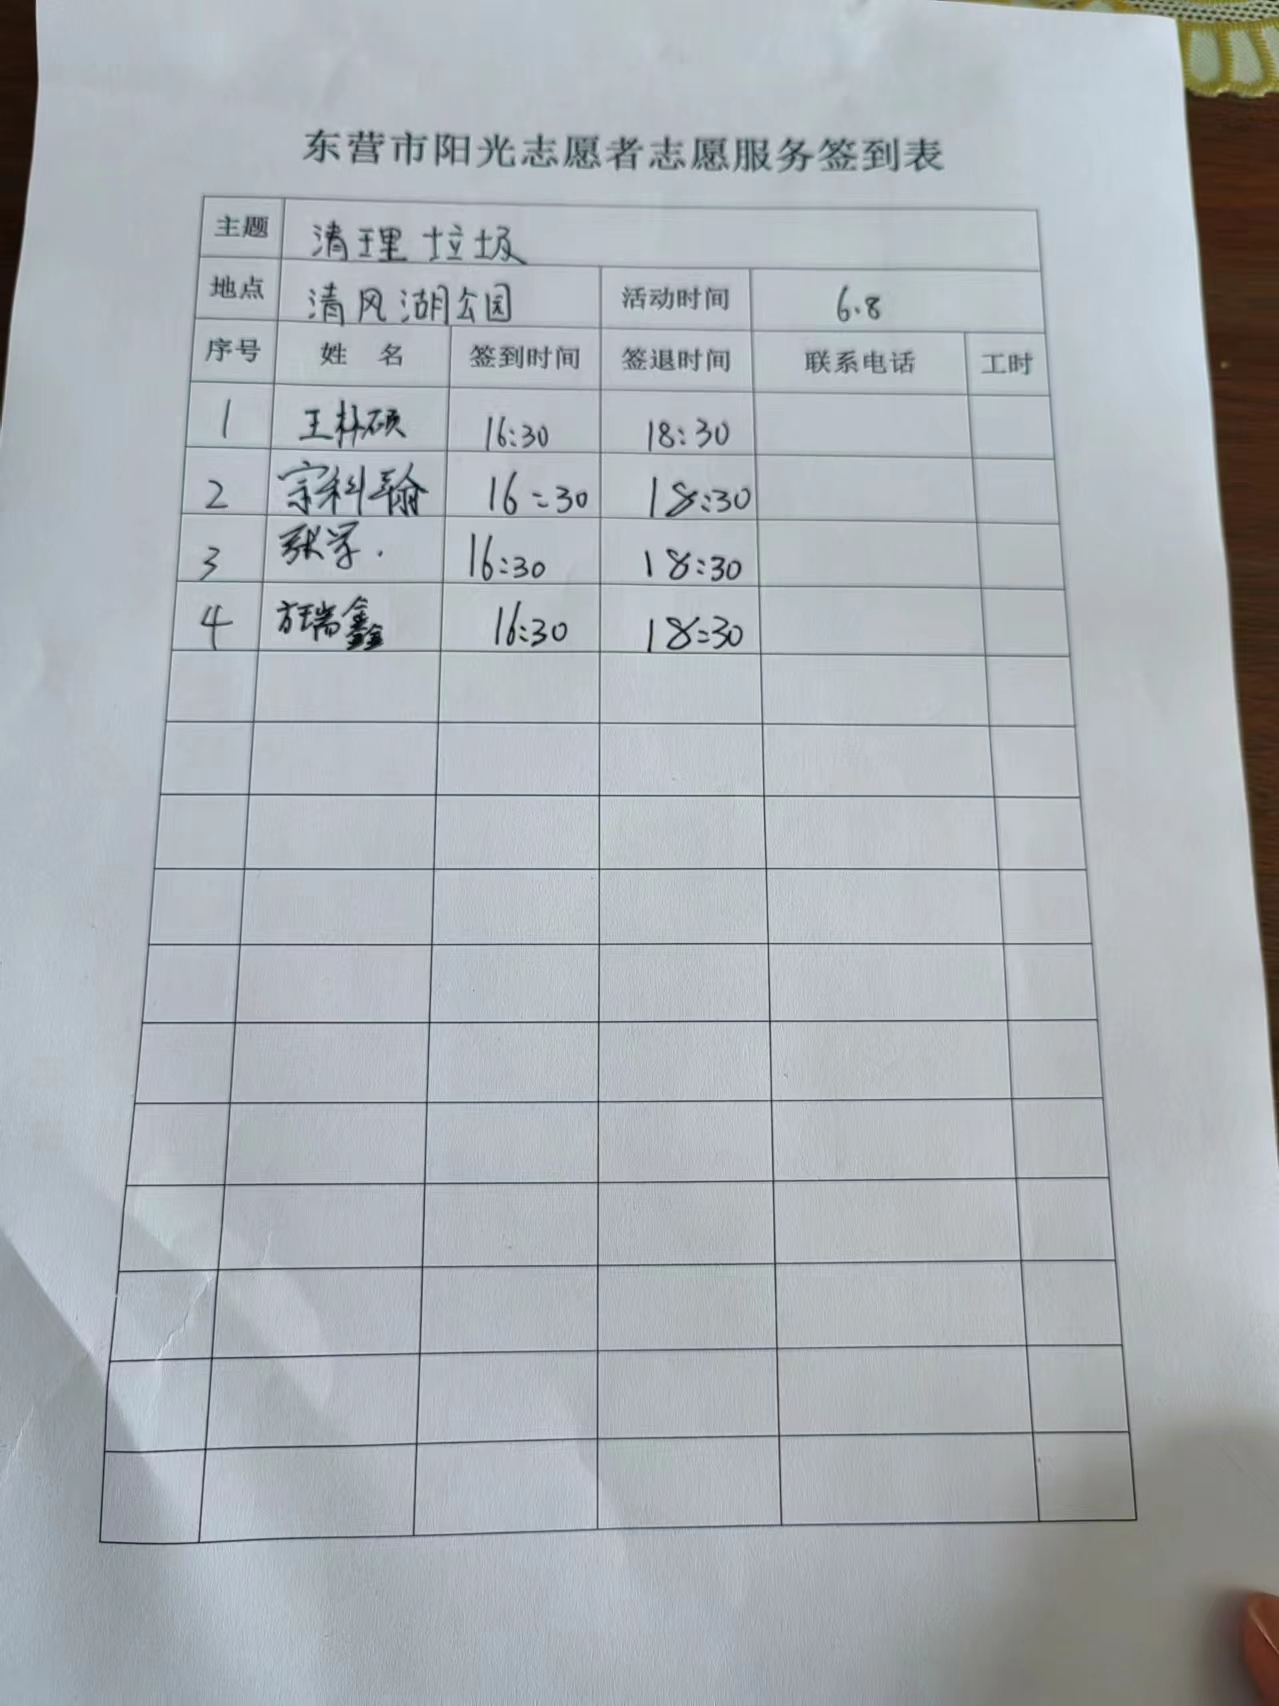 东营市阳光志愿者志愿服务签到表
主题 清理垃圾
地点 清风湖公园 活动时间 6.8
序号 姓 名 签到时间 签退时间 联系电话 工时
1 王朴硕 16:30 18:30
2 宗科翰 16:30 18:30
3 张 16:30 18:30
4 瑞鑫 16:30 18:30